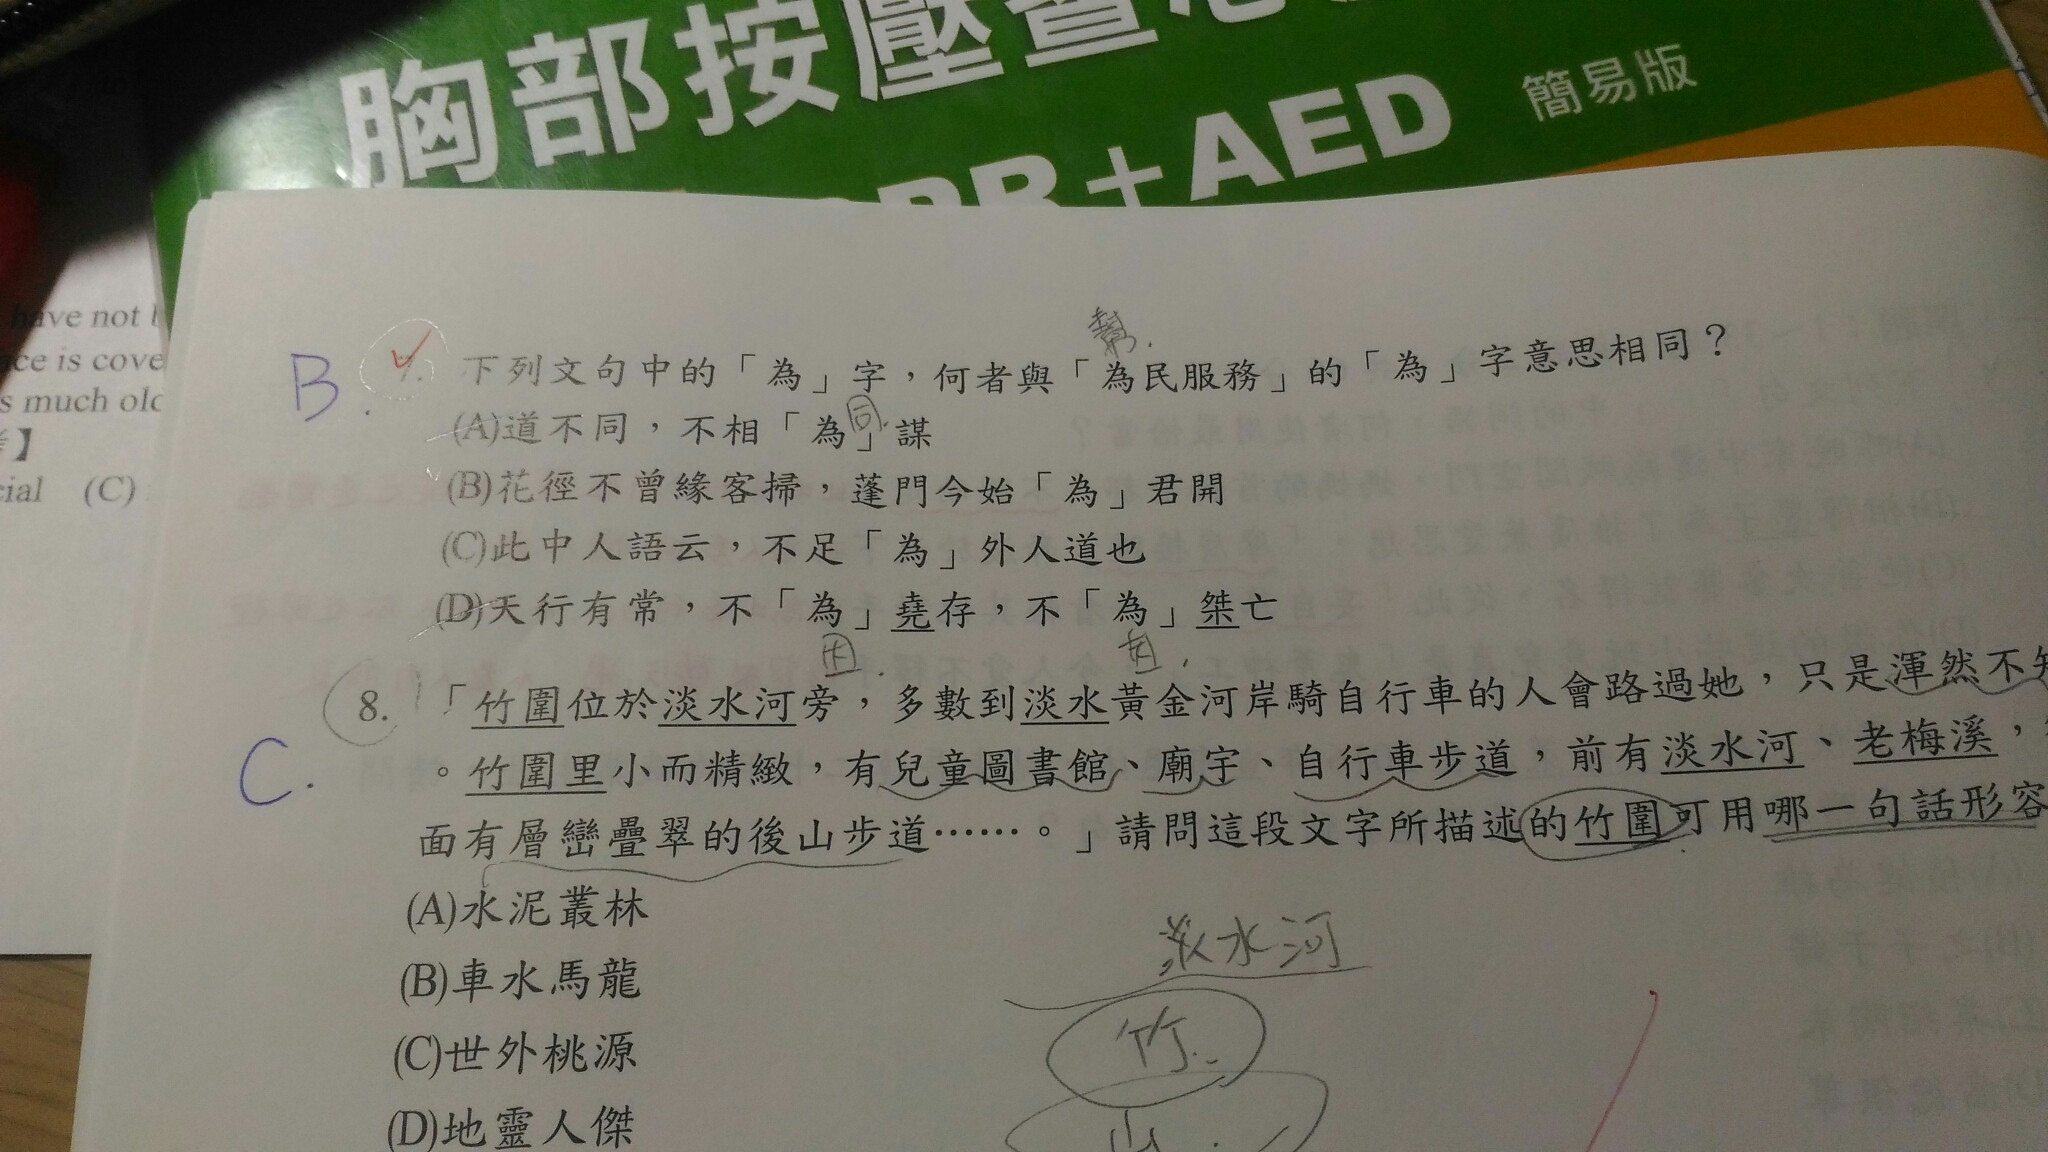 胸部按壓
CPR+AED 簡易版
have not
ce is cove
s much old
】
cial (C)
幫.
B. 下列文句中的「為」字，何者與「為民服務」的「為」字意思相同？
(A)道不同，不相「為」謀
同.
(B)花徑不曾緣客掃，蓬門今始「為」君開
(C)此中人語云，不足「為」外人道也
(D)天行有常，不「為」堯存，不「為」桀亡
因.
8. 「竹圍位於淡水河旁，多數到淡水黃金河岸騎自行車的人會路過她，只是渾然不知
C. 。竹圍里小而精緻，有兒童圖書館、廟宇、自行車步道，前有淡水河、老梅溪，
面有層巒疊翠的後山步道……。」請問這段文字所描述的竹圍可用哪一句話形容
(A)水泥叢林
淡水河
(B)車水馬龍
竹
(C)世外桃源
山
(D)地靈人傑